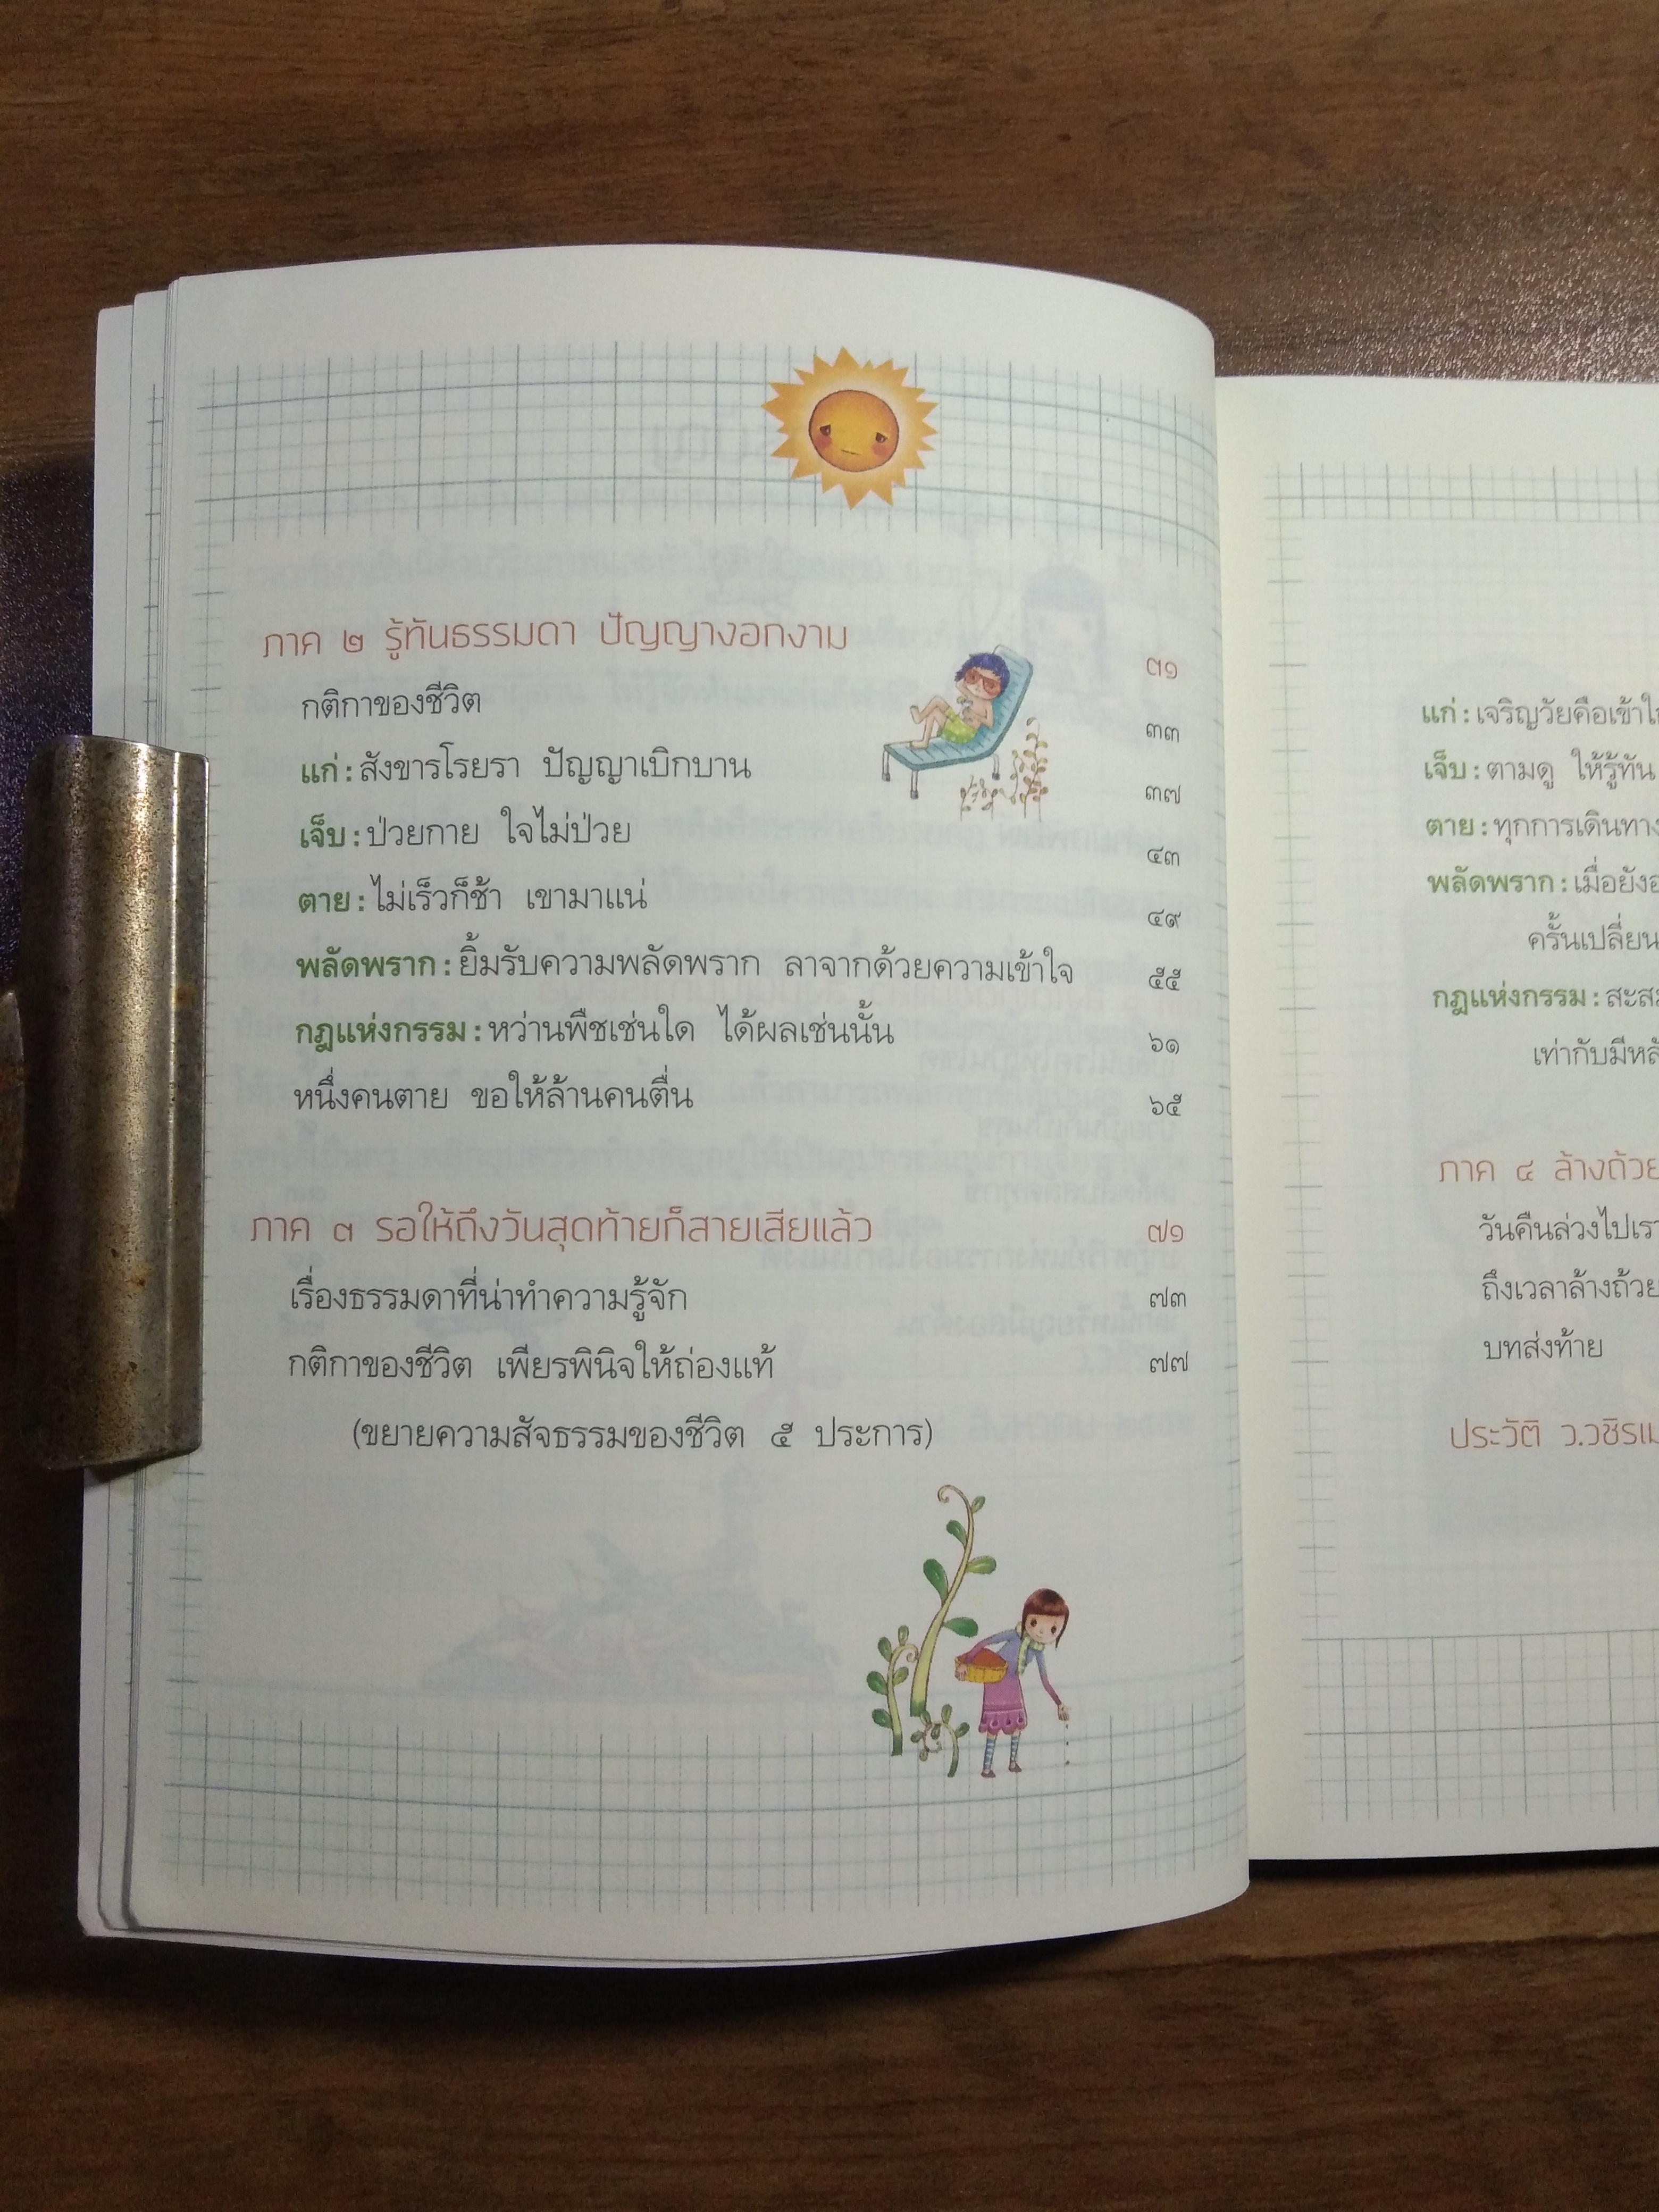 ภาค ๒ รู้ทันธรรมดา ปัญญางอกงาม ๓๑
กติกาของชีวิต ๓๓
แก่ : สังขารโรยรา ปัญญาเบิกบาน ๓๗
เจ็บ : ป่วยกาย ใจไม่ป่วย ๔๓
ตาย : ไม่เร็วก็ช้า เขามาแน่ ๔๙
พลัดพราก : ยิ้มรับความพลัดพราก ลาจากด้วยความเข้าใจ ๕๕
กฎแห่งกรรม : หว่านพืชเช่นใด ได้ผลเช่นนั้น ๖๑
หนึ่งคนตาย ขอให้ล้านคนตื่น ๖๕
ภาค ๓ รอให้ถึงวันสุดท้ายก็สายเสียแล้ว ๗๑
เรื่องธรรมดาที่น่าทำความรู้จัก ๗๓
กติกาของชีวิต เพียรพินิจให้ถ่องแท้ ๗๗
(ขยายความสัจธรรมของชีวิต ๕ ประการ)
แก่ : เจริญวัยคือเข้า
เจ็บ : ตามดู ให้รู้ทัน
ตาย : ทุกการเดินทาง
พลัดพราก : เมื่อยัง
ครั้นเปลี่ยน
กฎแห่งกรรม :
เท่ากับมี
ภาค ๔ ล้างถ้วย
วันคืนล่วงไป
ถึงเวลาล้างถ้วย
บทส่งท้าย
ประวัติ ว.วชิร